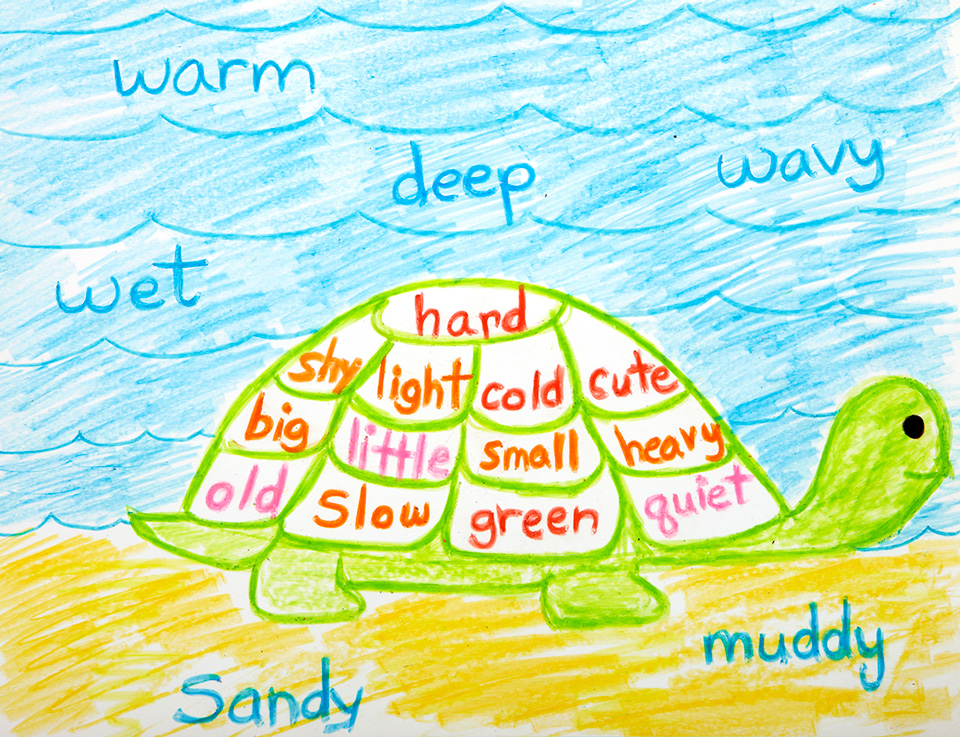 warm
deep
wavy
wet
hard
shy light cold cute
big little small heavy
old slow green quiet
muddy
Sandy